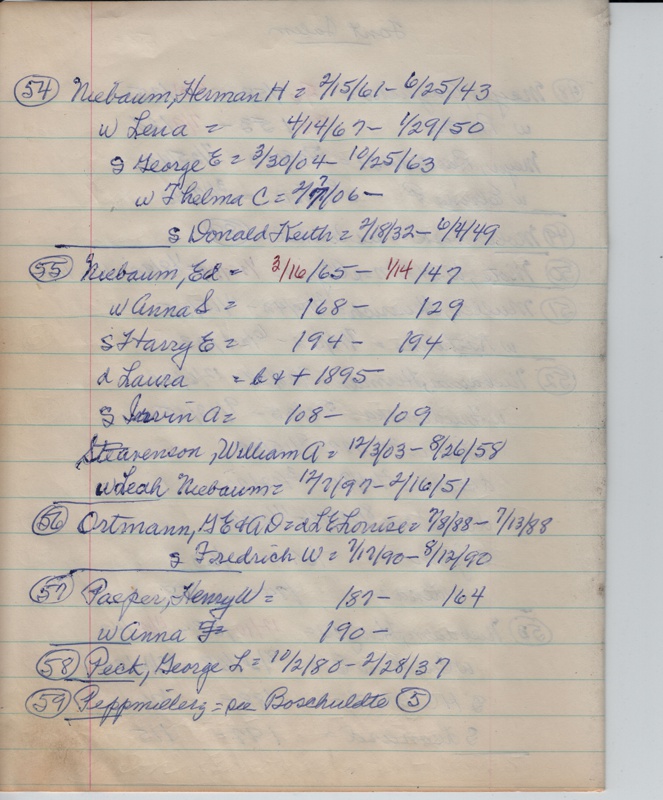 54 Niebaum, Herman H = 2/15/61 - 6/25/43
w Lena = 4/14/67 - 1/29/50
s George E = 3/30/04 - 10/25/63
w Thelma C = 2/7/06 -
s Donald Keith = 2/18/32 - 6/4/49
55 Niebaum, Ed = 3/16/65 - 1/14/47
w Anna S = 168 - 129
s Harry E = 194 - 194
d Laura = b & + 1895
s Irvin A = 108 - 109
Steavenson, William A = 12/3/03 - 8/26/58
w Leah Niebaum = 12/7/97 - 2/16/51
56 Ortmann, G E & A D = d L E Louise = 7/8/88 - 7/13/88
s Fredrich W = 7/17/90 - 8/12/90
57 Paeper, Henry W = 187 - 164
w Anna = 190 -
58 Peck, George L = 10/2/80 - 2/28/37
59 Peppmiellerz = see Boschuldte 5